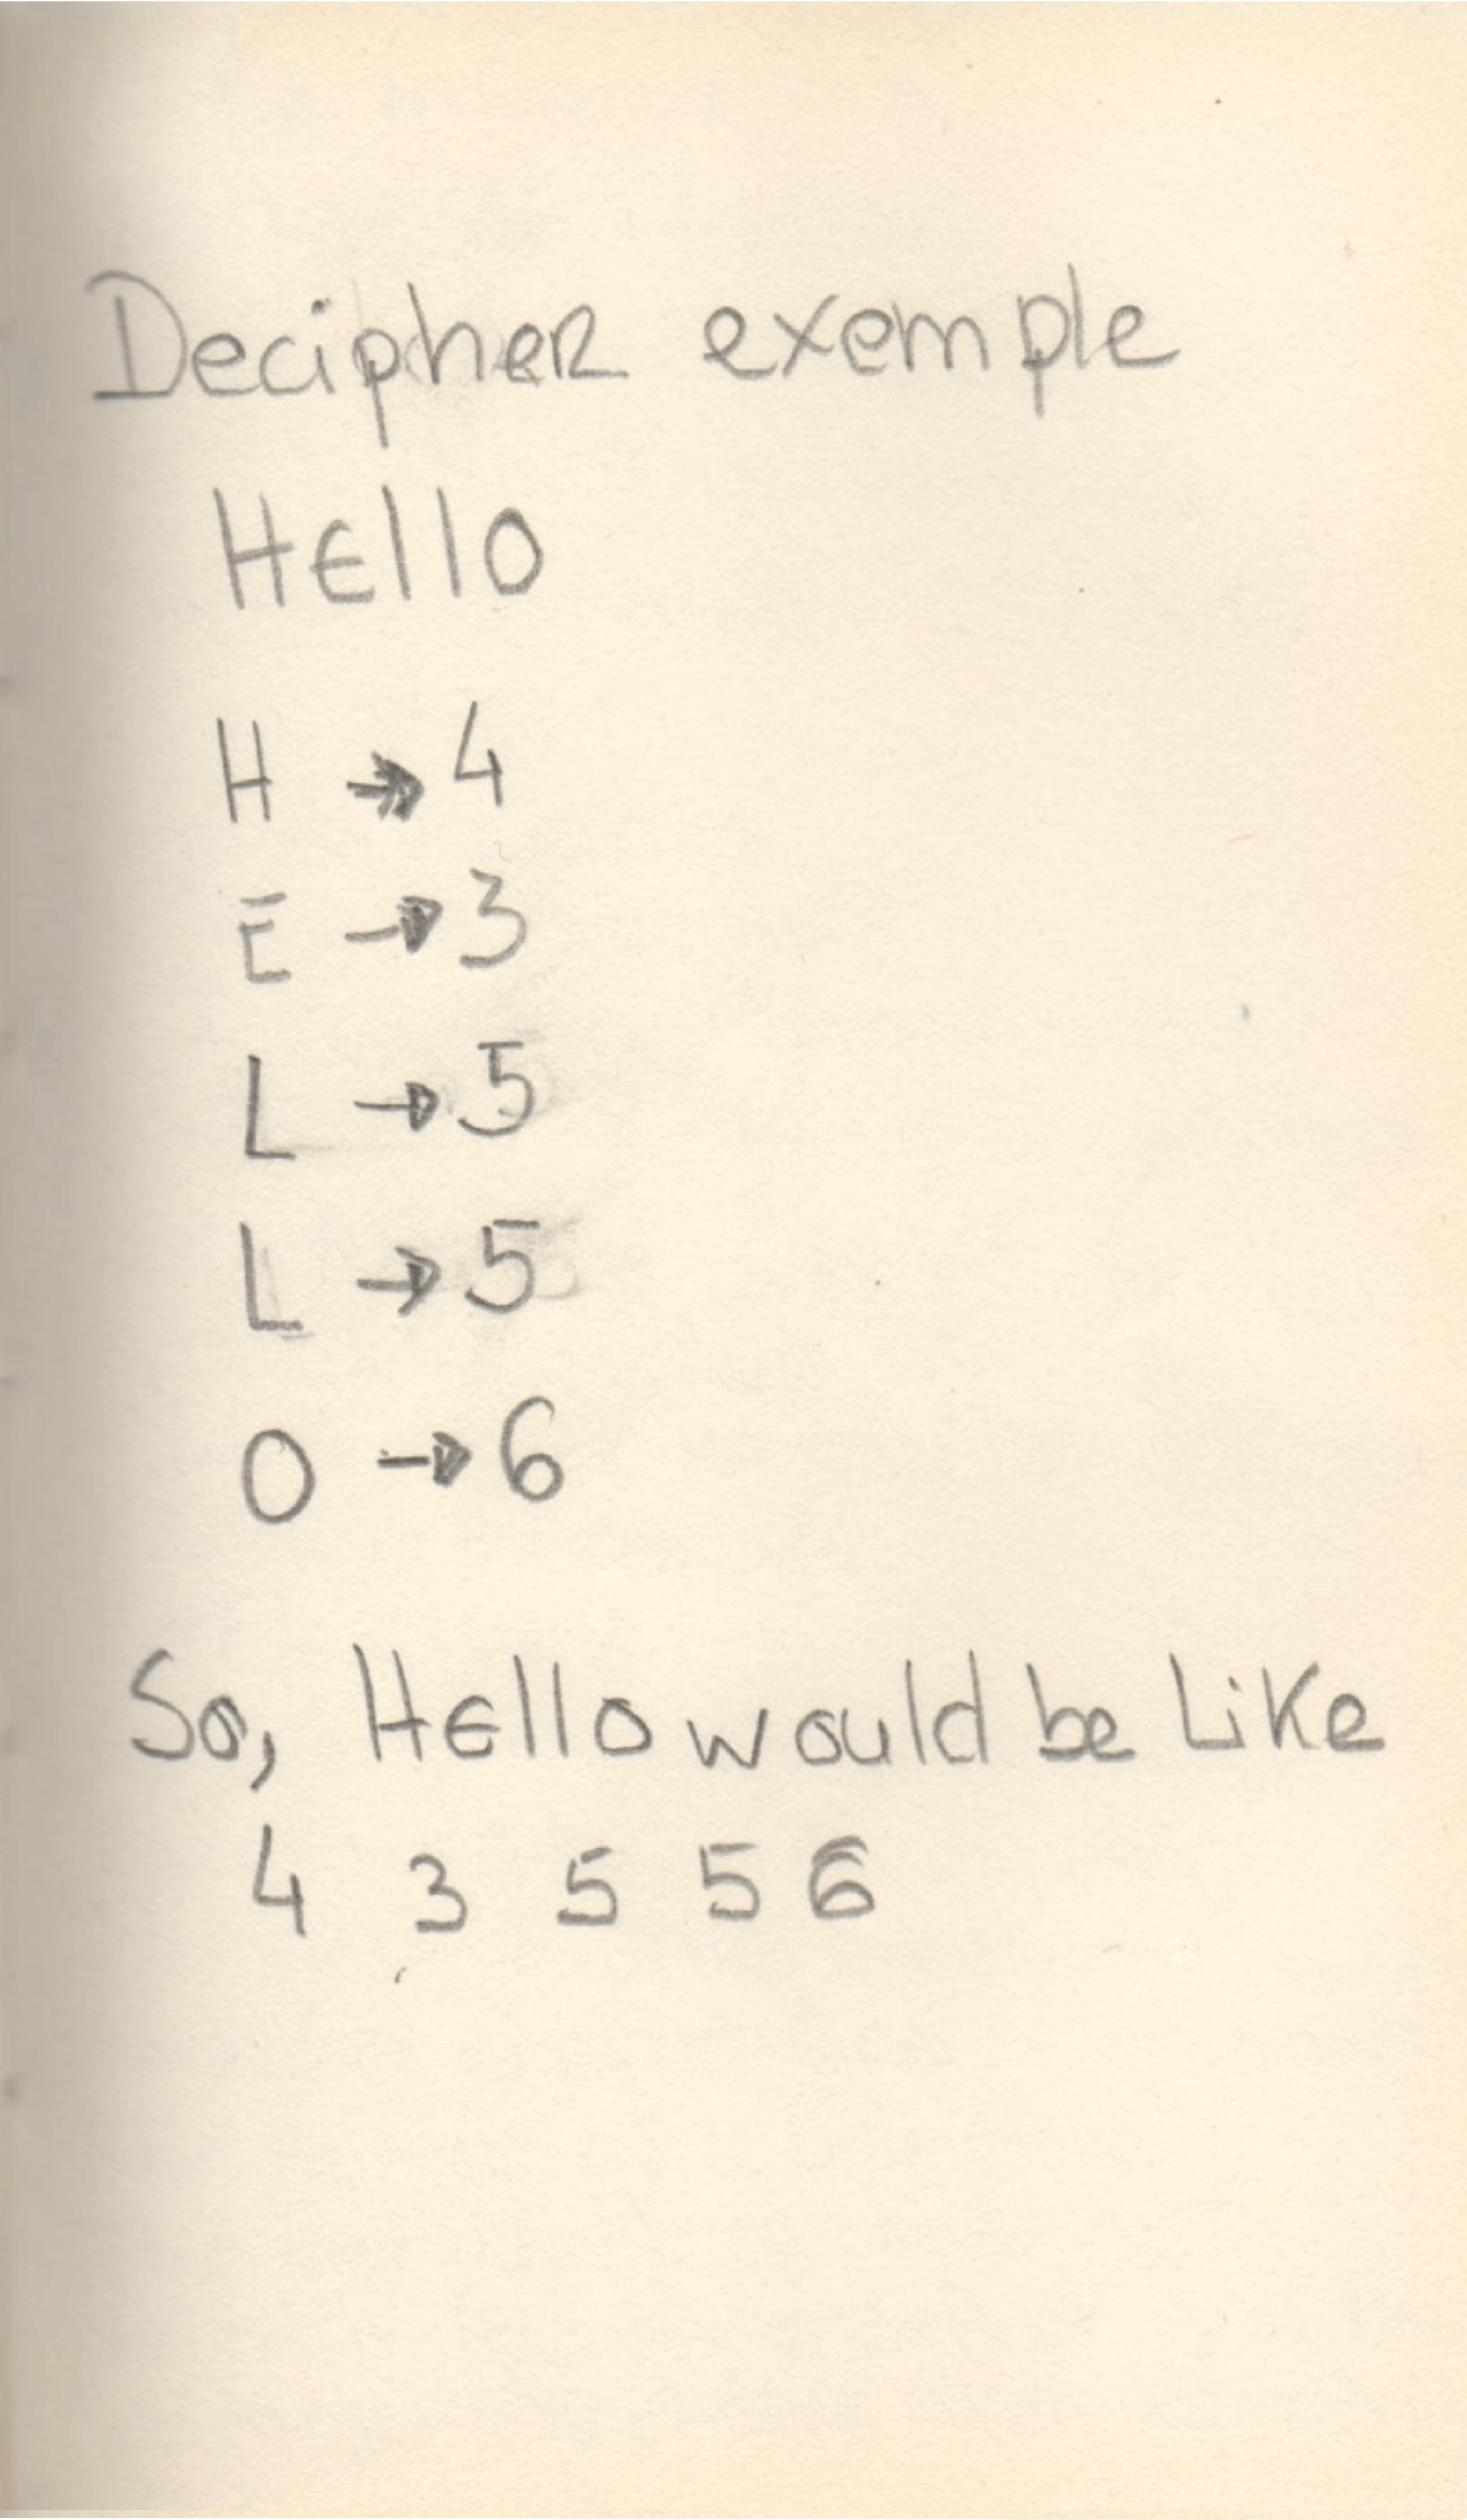 Decipher exemple
Hello
H → 4
E → 3
L → 5
L → 5
O → 6
So, Hello would be like
4 3 5 5 6